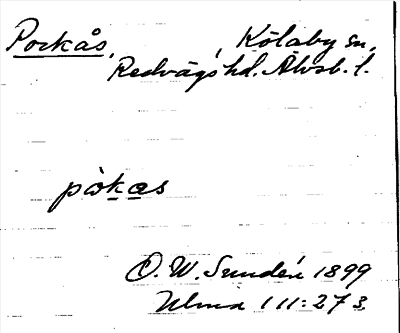 Porkås, , Kölaby sn,
Redvägs hd. Älvsb. l.
pòkas
O. W. Sundén 1899
Ulma 111:273